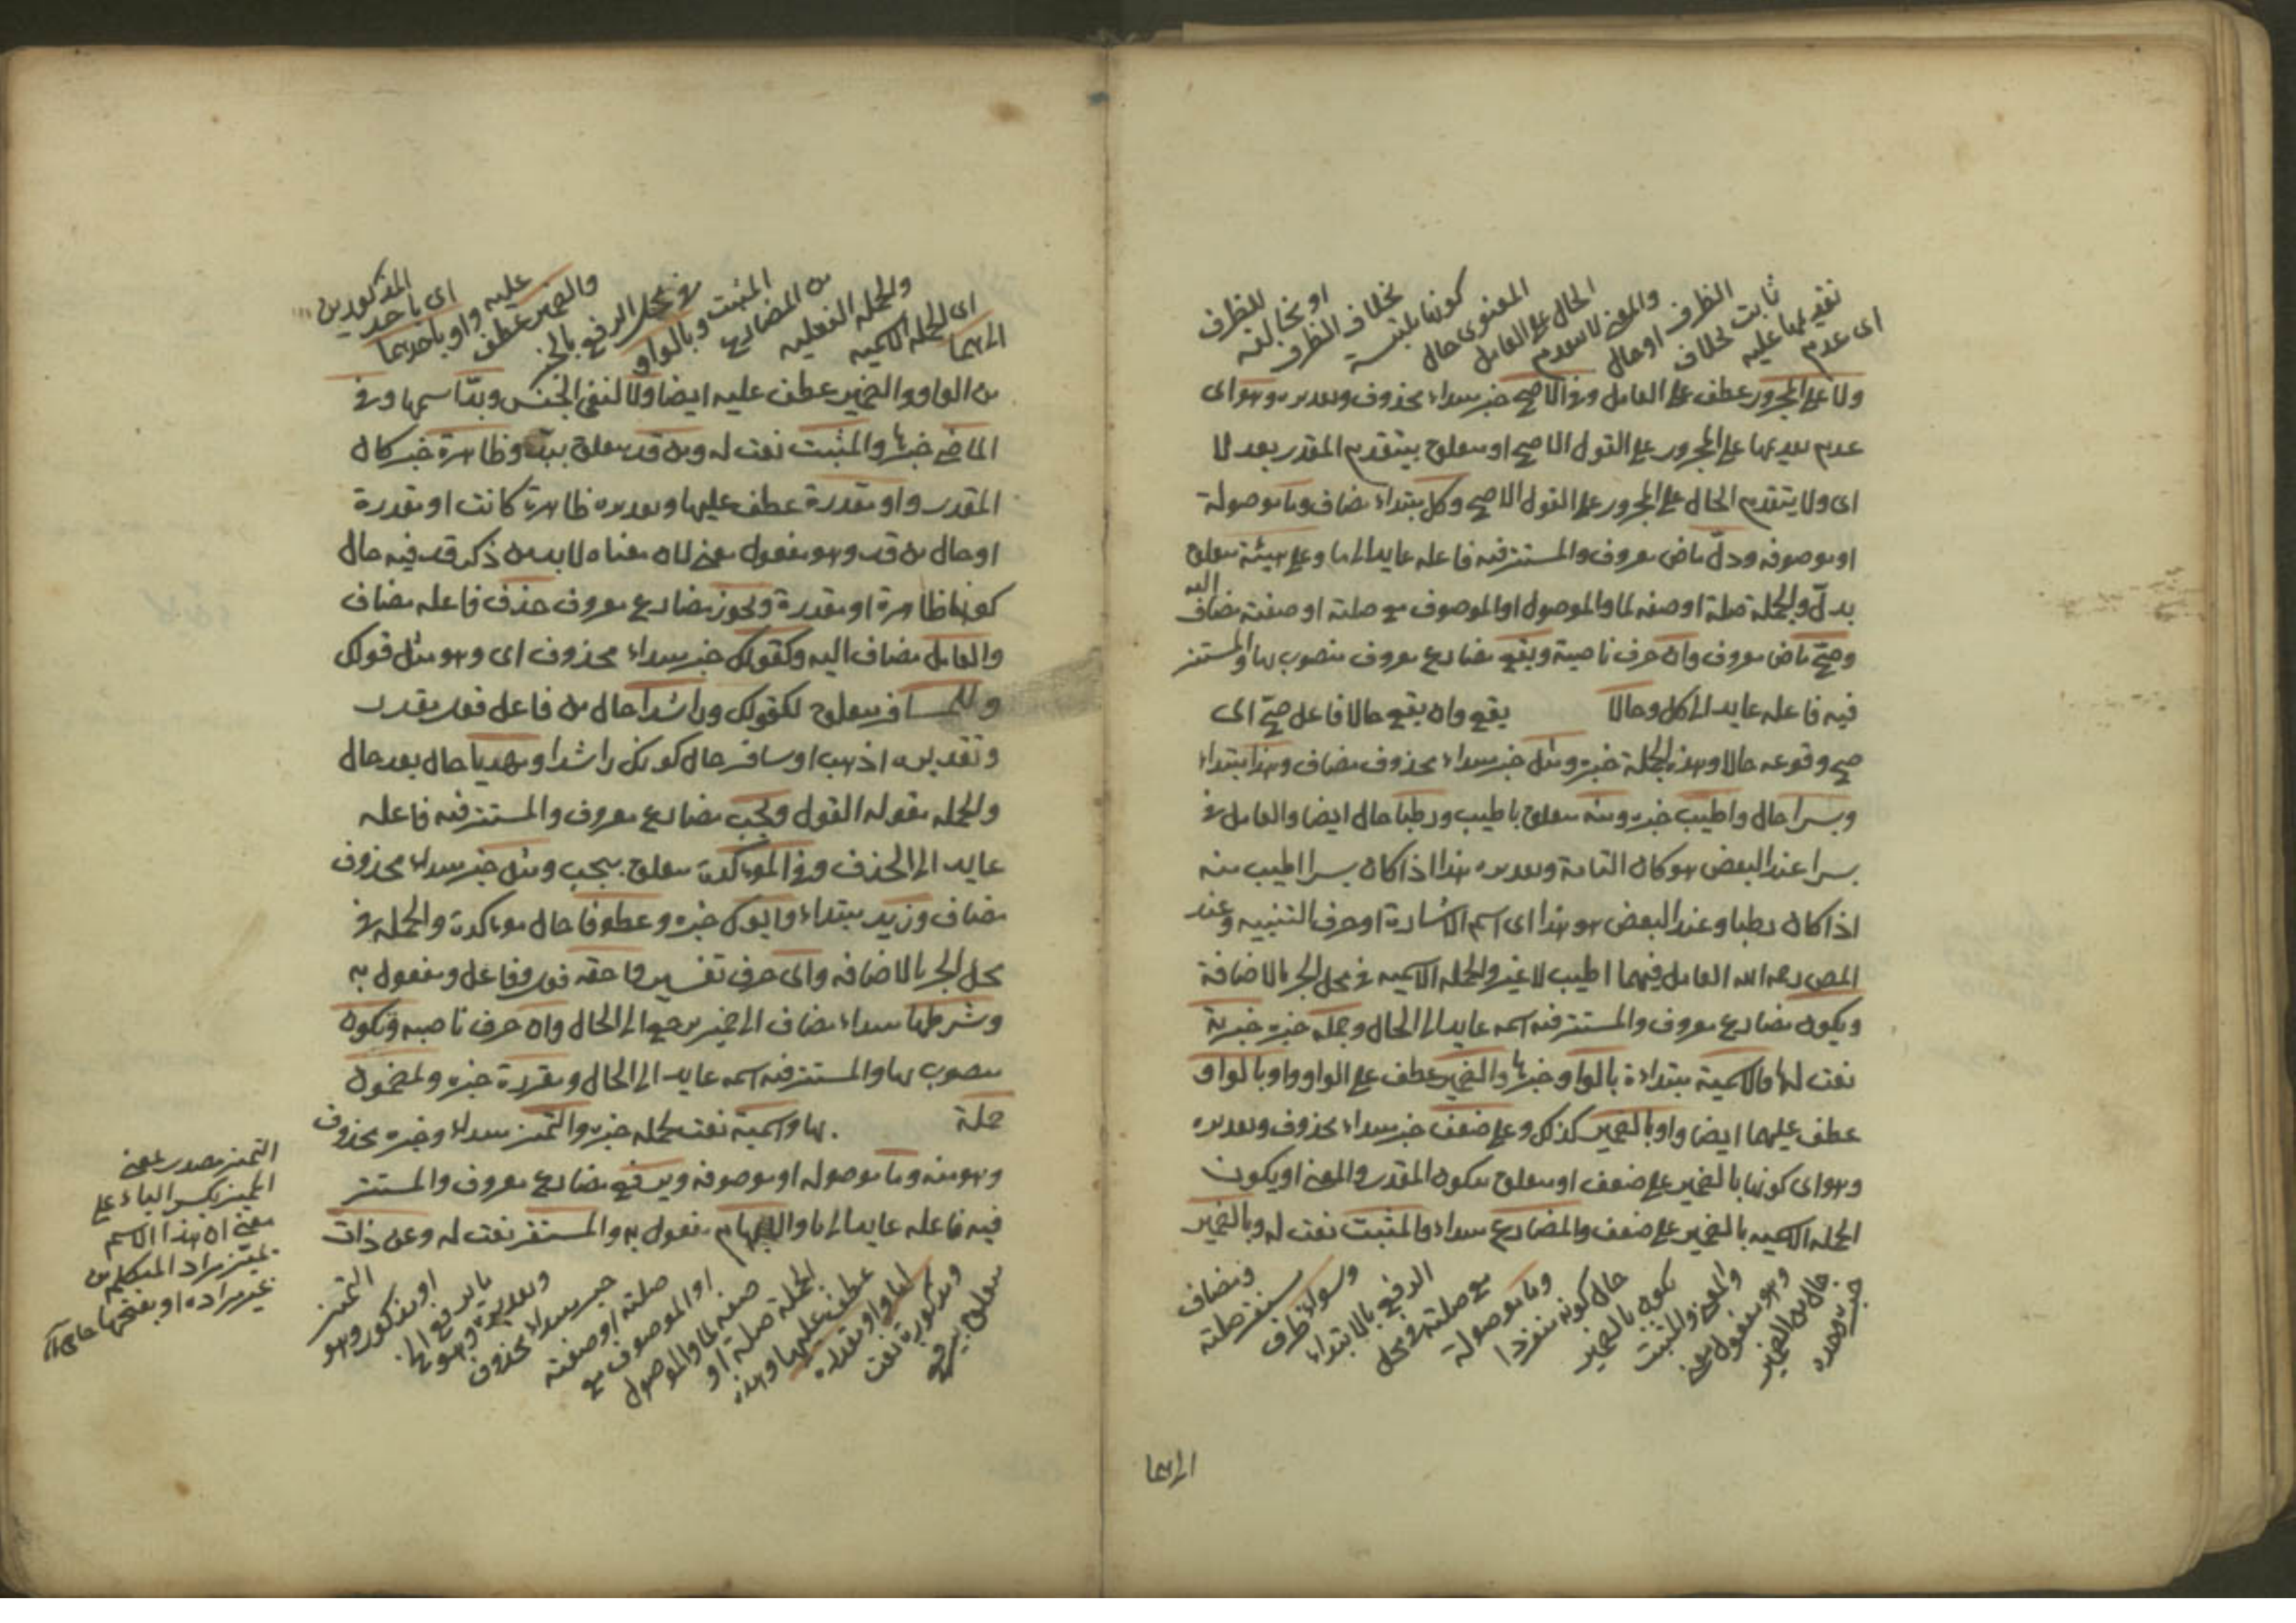 اى عدم
تقديمها عليه
ثابت بخلاف
الظرف او حال
والمعنى لا يتقدم
الحال على العامل
المعنوى حال
كونها ملتبسة
بخلاف الظرف
او بمخالفته
للظرف
ولا على المجرور عطف على العامل وفى الاصح خبر مبتداء محذوف وتقديره وهو اى
عدم تقديمها على المجرور على القول الاصح او متعلق بيتقدم المقدر بعد لا
اى ولا يتقدم الحال على المجرور على القول الاصح وكل مبتداء مضاف وما موصولة
او موصوفه ودلّ ماض معروف والمستتر فيه فاعله عايد الى ما وعلى هيئة متعلق
بدلّ والجملة صلة او صفه لما والموصول او الموصوف مع صلته او صفته مضاف اليه
وصحّ ماض معروف وان حرف ناصبة ويقع مضارع معروف منصوب بها والمستتر
فيه فاعله عايد الى كل وحالا يقع وان يقع حالا فاعل صحّ اى
صح وقوعه حالا وهذه الجملة خبره ومثل خبر مبتداء محذوف مضاف وهذا مبتداء
وبسرا حال واطيب خبره ومنه متعلق باطيب ورطبا حال ايضا والعامل فى
بسرا عند البعض هو كان التامة وتقديره هذا اذا كان بسرا اطيب منه
اذا كان رطبا وعند البعض هو هذا اى اسم الاشارة او حرف التنبيه وعند
المص رحمه الله العامل فيهما اطيب لا غير والجمله الاسميه فى محل الجر بالاضافة
ويكون مضارع معروف والمستتر فيه اسمه عايد الى الحال وجملة خبره خبرية
نعت لها فالاسمية مبتداءة بالواو خبرها والضمير عطف على الواو واو بالواو
عطف عليهما ايضا واو بالضمير كذلك وعلى ضعف خبر مبتداء محذوف وتقديره
وهو اى كونها بالضمير على ضعف او متعلق بيكون المقدر والمعنى او يكون
الجملة الاسميه بالضمير على ضعف والمضارع مبتداء والمثبت نعت له وبالضمير
خبره وحده
حال من الضمير
وهو مفعول معنى
والمعنى والمثبت
يكون بالضمير
حال كونه منفردا
وما موصولة
مع صلته فى محل
الرفع بالابتداء
وسواء ظرف
مستقر صلته
ومضاف
اليهما
اليهما
اى الجمله الاسميه
والجمله الفعليه
من المضارع
المثبت وبالواو
فى محل الرفع بالخبر
والضمير عطف
عليه واو باحدهما
اى باحد
المذكورين
من الواو والضمير عطف عليه ايضا ولا لنفى الجنس وبدّ اسمها وفى
الماضى خبرها والمثبت نعت له ومن قد متعلق ببدّ وظاهرة خبر كان
المقدر واو مقدرة عطف عليها وتقديره ظاهرة كانت او مقدرة
او حال من قد وهو مفعول معنى لان معناه لا بد من ذكر قد فيه حال
كونها ظاهرة او مقدرة ويجوز مضارع معروف حذف فاعله مضاف
والعامل مضاف اليه وكقولك خبر مبتداء محذوف اى وهو مثل قولك
وللمسافر متعلق لكقولك وراشدا حال من فاعل فعل مقدر
وتقديره اذهب او سافر حال كونك راشدا ومهديا حال بعد حال
والجمله مقوله القول ويجب مضارع معروف والمستتر فيه فاعله
عايد الى الحذف وفى المؤكدة متعلق بيجب ومثل خبر مبتداء محذوف
مضاف وزيد مبتداء وابوك خبره وعطوفا حال مؤكدة والجمله فى
محل الجر بالاضافه واى حرف تفسير واحقه فعل وفاعل ومفعول به
وشرطها مبتداء مضاف الى ضمير يرجع الى الحال وان حرف ناصبه وتكون
منصوب بها والمستتر فيه اسمه عايد الى الحال ومقررة خبره ولمضمون
جملة بها واسمية نعت لجمله خبره والتميز مبتداء وخبره محذوف
وهو منه وما موصوله او موصوفه ويرفع مضارع معروف والمستتر
فيه فاعله عايد الى ما والابهام مفعول به والمستقر نعت له وعن ذات
متعلق بيرفع
ومذكورة نعت
لها واو مقدرة
عطف عليها وهذه
الجملة صلة او
صفه لما والموصول
او الموصوف مع
صلته او صفته
خبر مبتداء محذوف
وتقديره وهو ما
يرفع
او مذكور وهو
التميز
التميز مصدر بمعنى
المميز بكسر الياء على
معنى ان هذا الاسم
يميز مراد المتكلم من
غير مراده او بفتحها